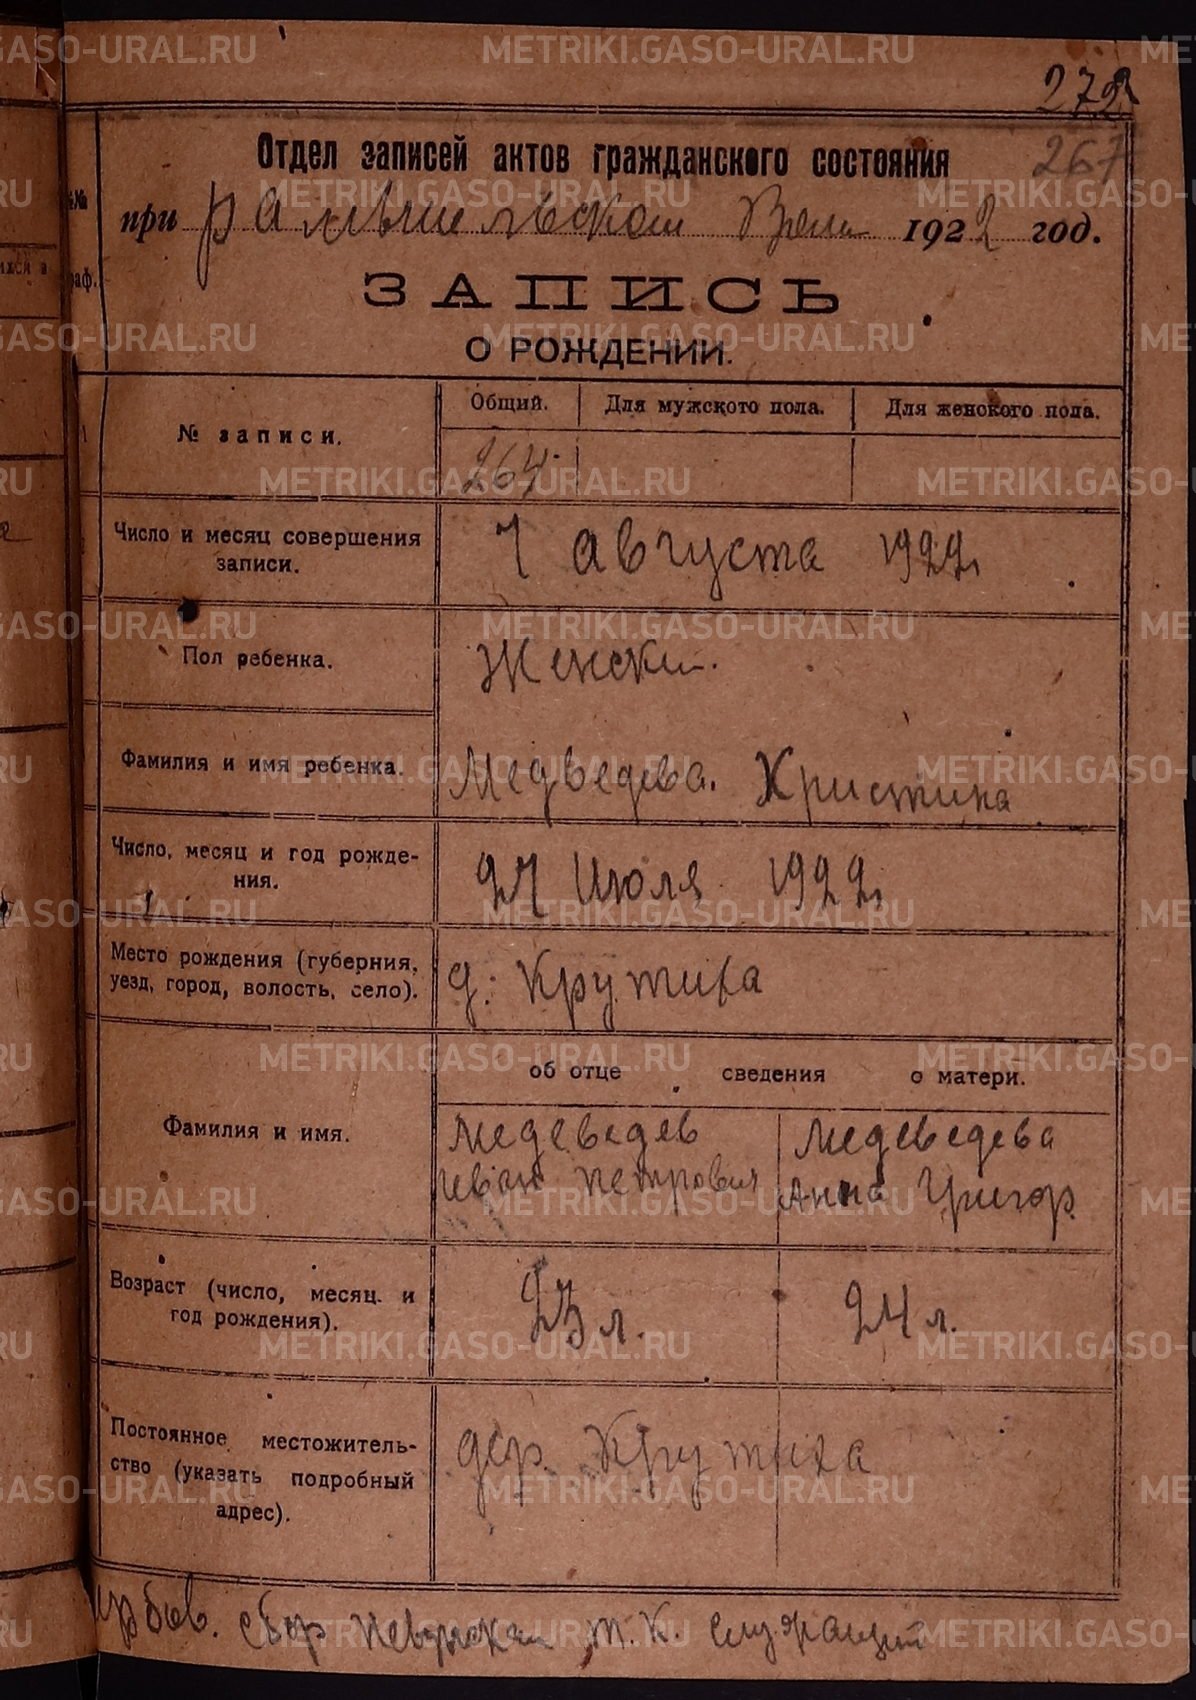 272
Отдел записей актов гражданского состояния
267
при 1922 год.
ЗАПИСЬ
О РОЖДЕНИИ.
№ записи.
Общий. Для мужского пола. Для женского пола.
264
Число и месяц совершения
записи.
7 августа 1922
Пол ребенка.
Женски
Фамилия и имя ребенка.
Медведева. Христина
Число, месяц и год рожде-
ния.
27 Июля 1922
Место рождения (губерния,
уезд, город, волость, село).
д. Крутиха
Фамилия и имя.
об отце сведения о матери.
Медеведев
Иван Петрович
Медеведева
Анна Григор
Возраст (число, месяц и
год рождения).
23 л.
24 л.
Постоянное местожитель-
ство (указать подробный
адрес).
дер. Крутиха
сбор т.к. служащий
METRIKI.GASO-URAL.RU